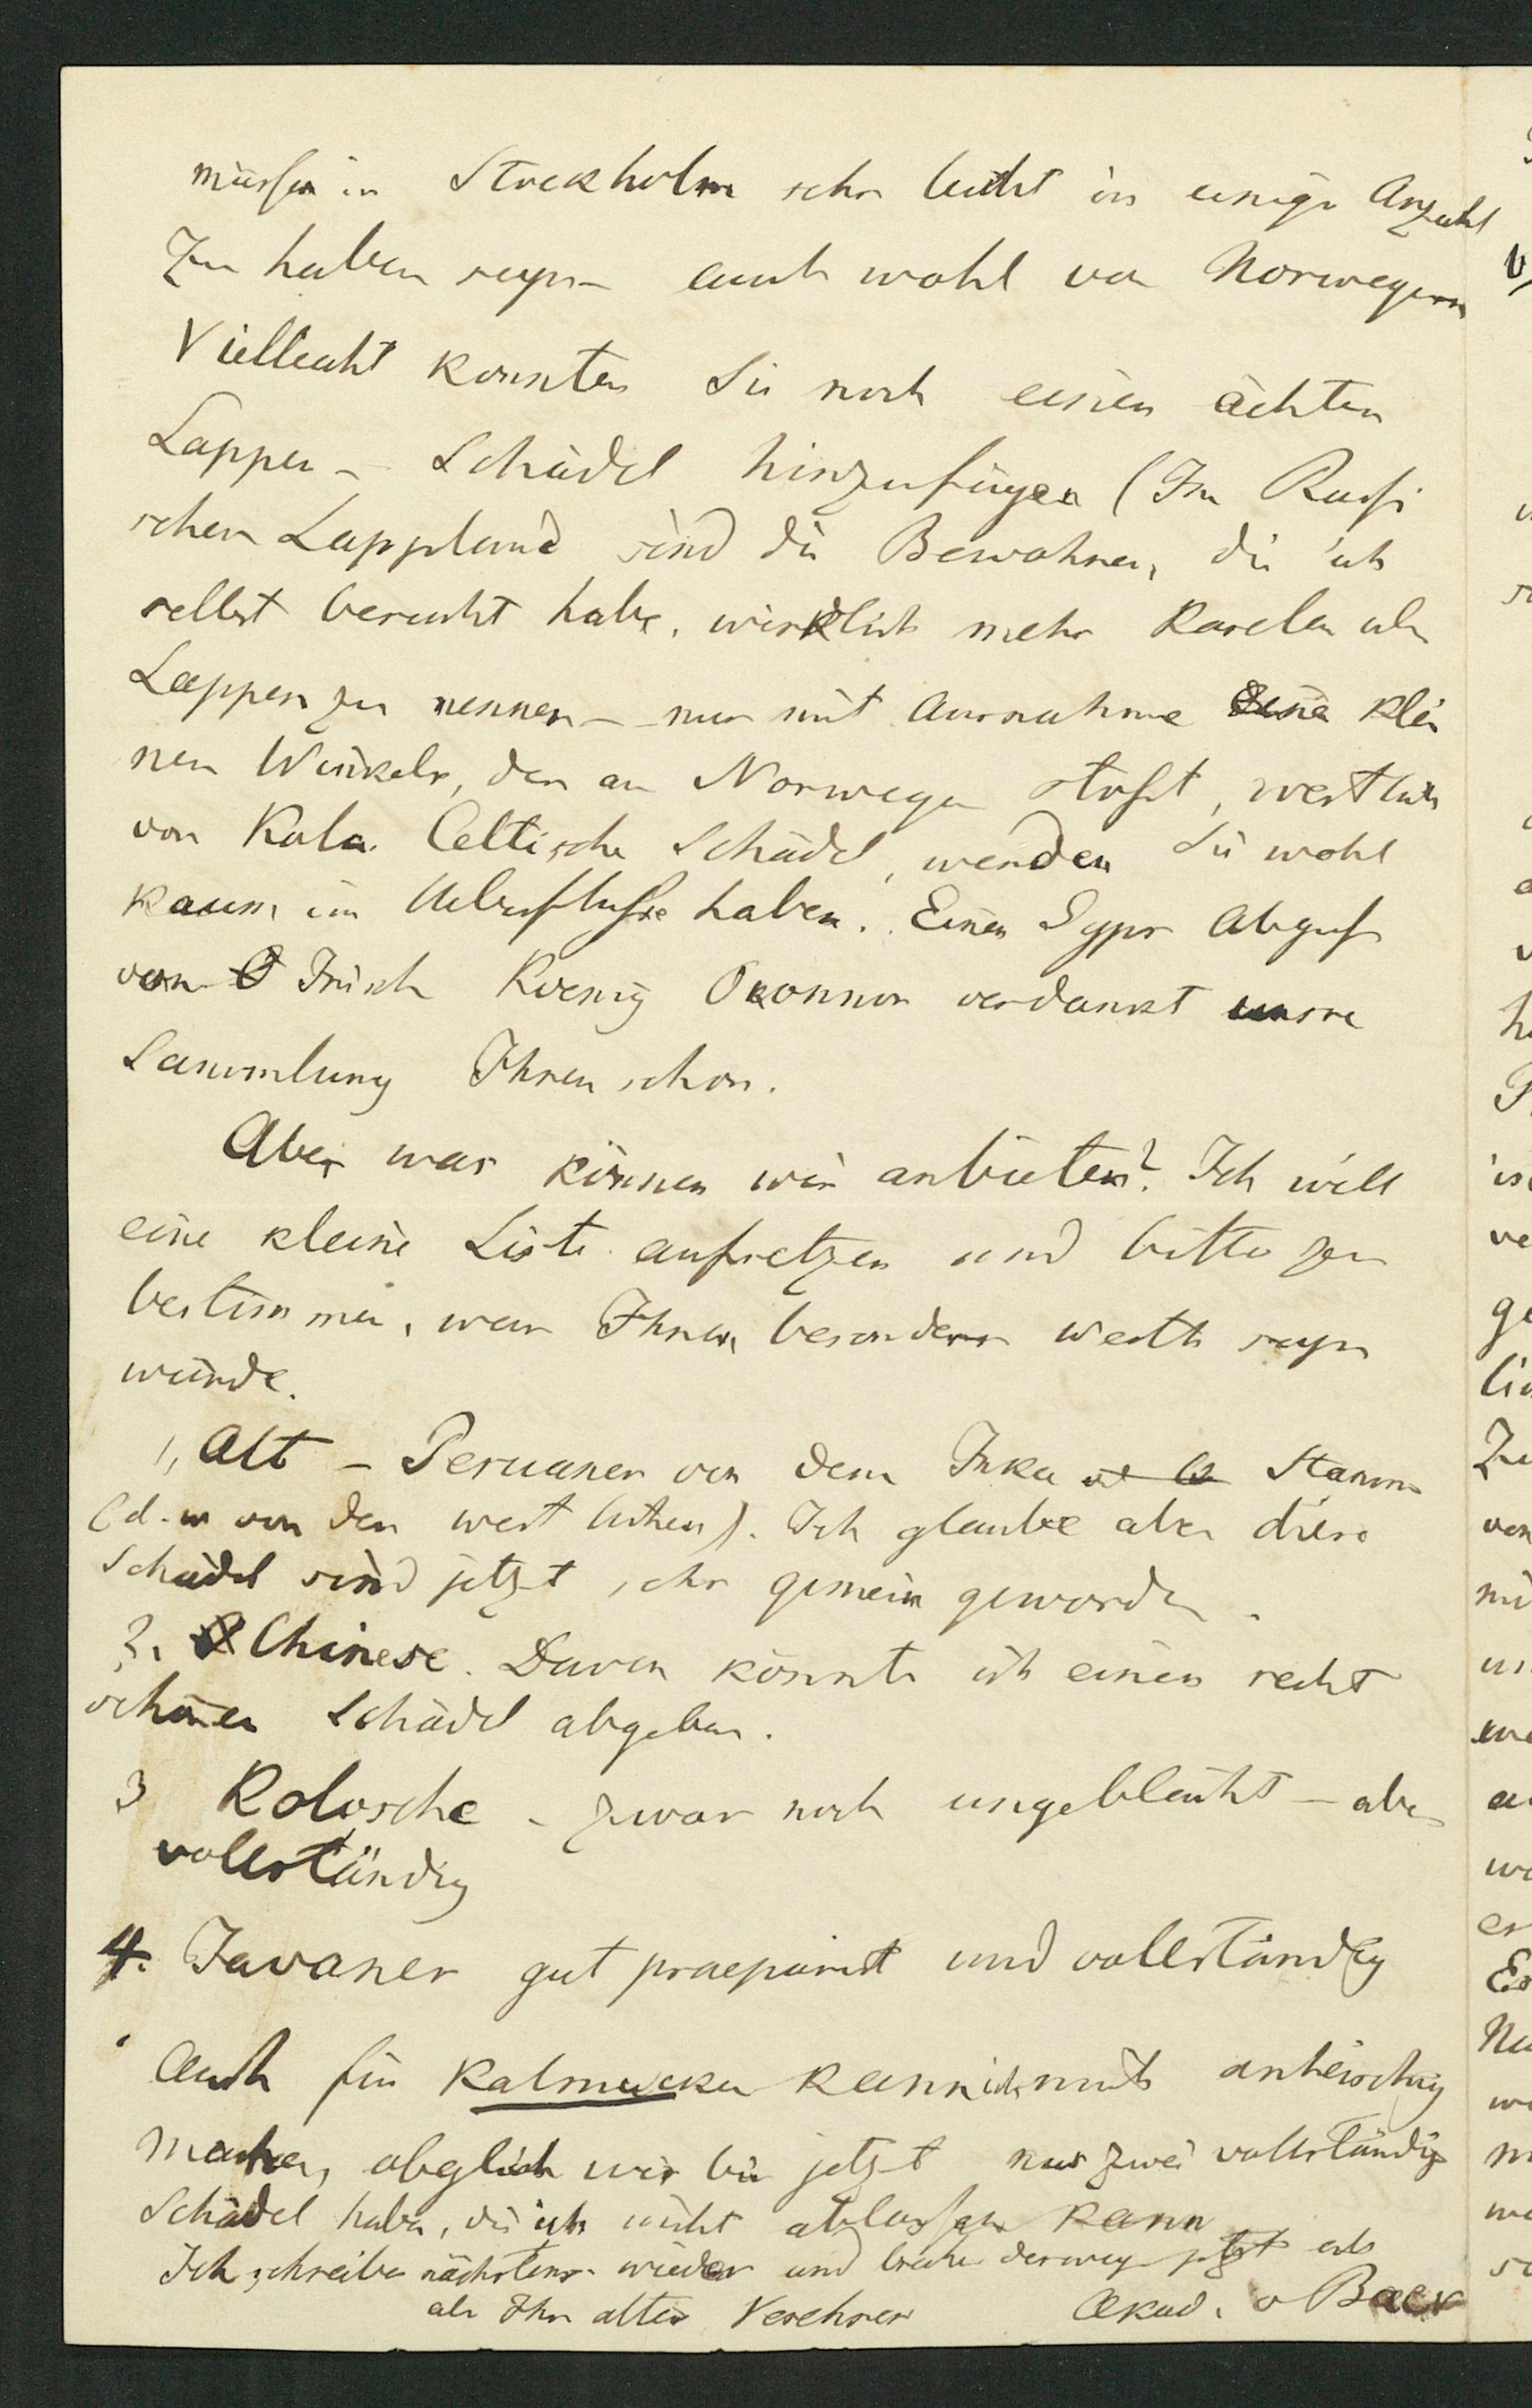 müssen in Stockholm sehr leicht in einiger Anzahl
zu haben seyn – auch wohl von Norwegern
Vielleicht konnten Sie noch einen ächten
Lappen – Schädel hinzufügen (Im Russi
schen Lappland sind die Bewohner, die ich
selbst besucht habe, wirklich mehr Karelen als
Lappen zu nennen – nur mit Ausnahme klei
nen Winkels, der an Norwegen stoßt, westlich
von Kola. Celtische Schädel, werden Sie wohl
kaum im Ueberflusse haben. Einen Gyps Abguß
vom Irisch Koenig Oconnor verdankt unsre
Sammlung Ihnen schon.
Aber was können wir anbieten? Ich will
eine kleine Liste aufsetzen und bitte zu
bestimmen, was Ihnen besonders werth seyn
würde.
1, Alt – Peruaner von dem Inka Stamm
(d. von den westlichen). Ich glaube aber diese
Schädel sind jetzt sehr gemein geworden.
2. Chinese. Davon könnte ich einen recht
schönen Schädel abgeben.
3 Kolosche – zwar noch ungebleicht – aber
vollständig
4. Javaner gut praeparirt und vollständig
Auch für Kalmucken kann ich mich anheischig
machen, obgleich wir bis jetzt nur zwei vollständige
Schädel haben, die ich nicht ablassen kann
Ich schreibe nächstens wieder und breche deswegen jetzt ab
als Ihr alter Verehrer Akad. v Baer